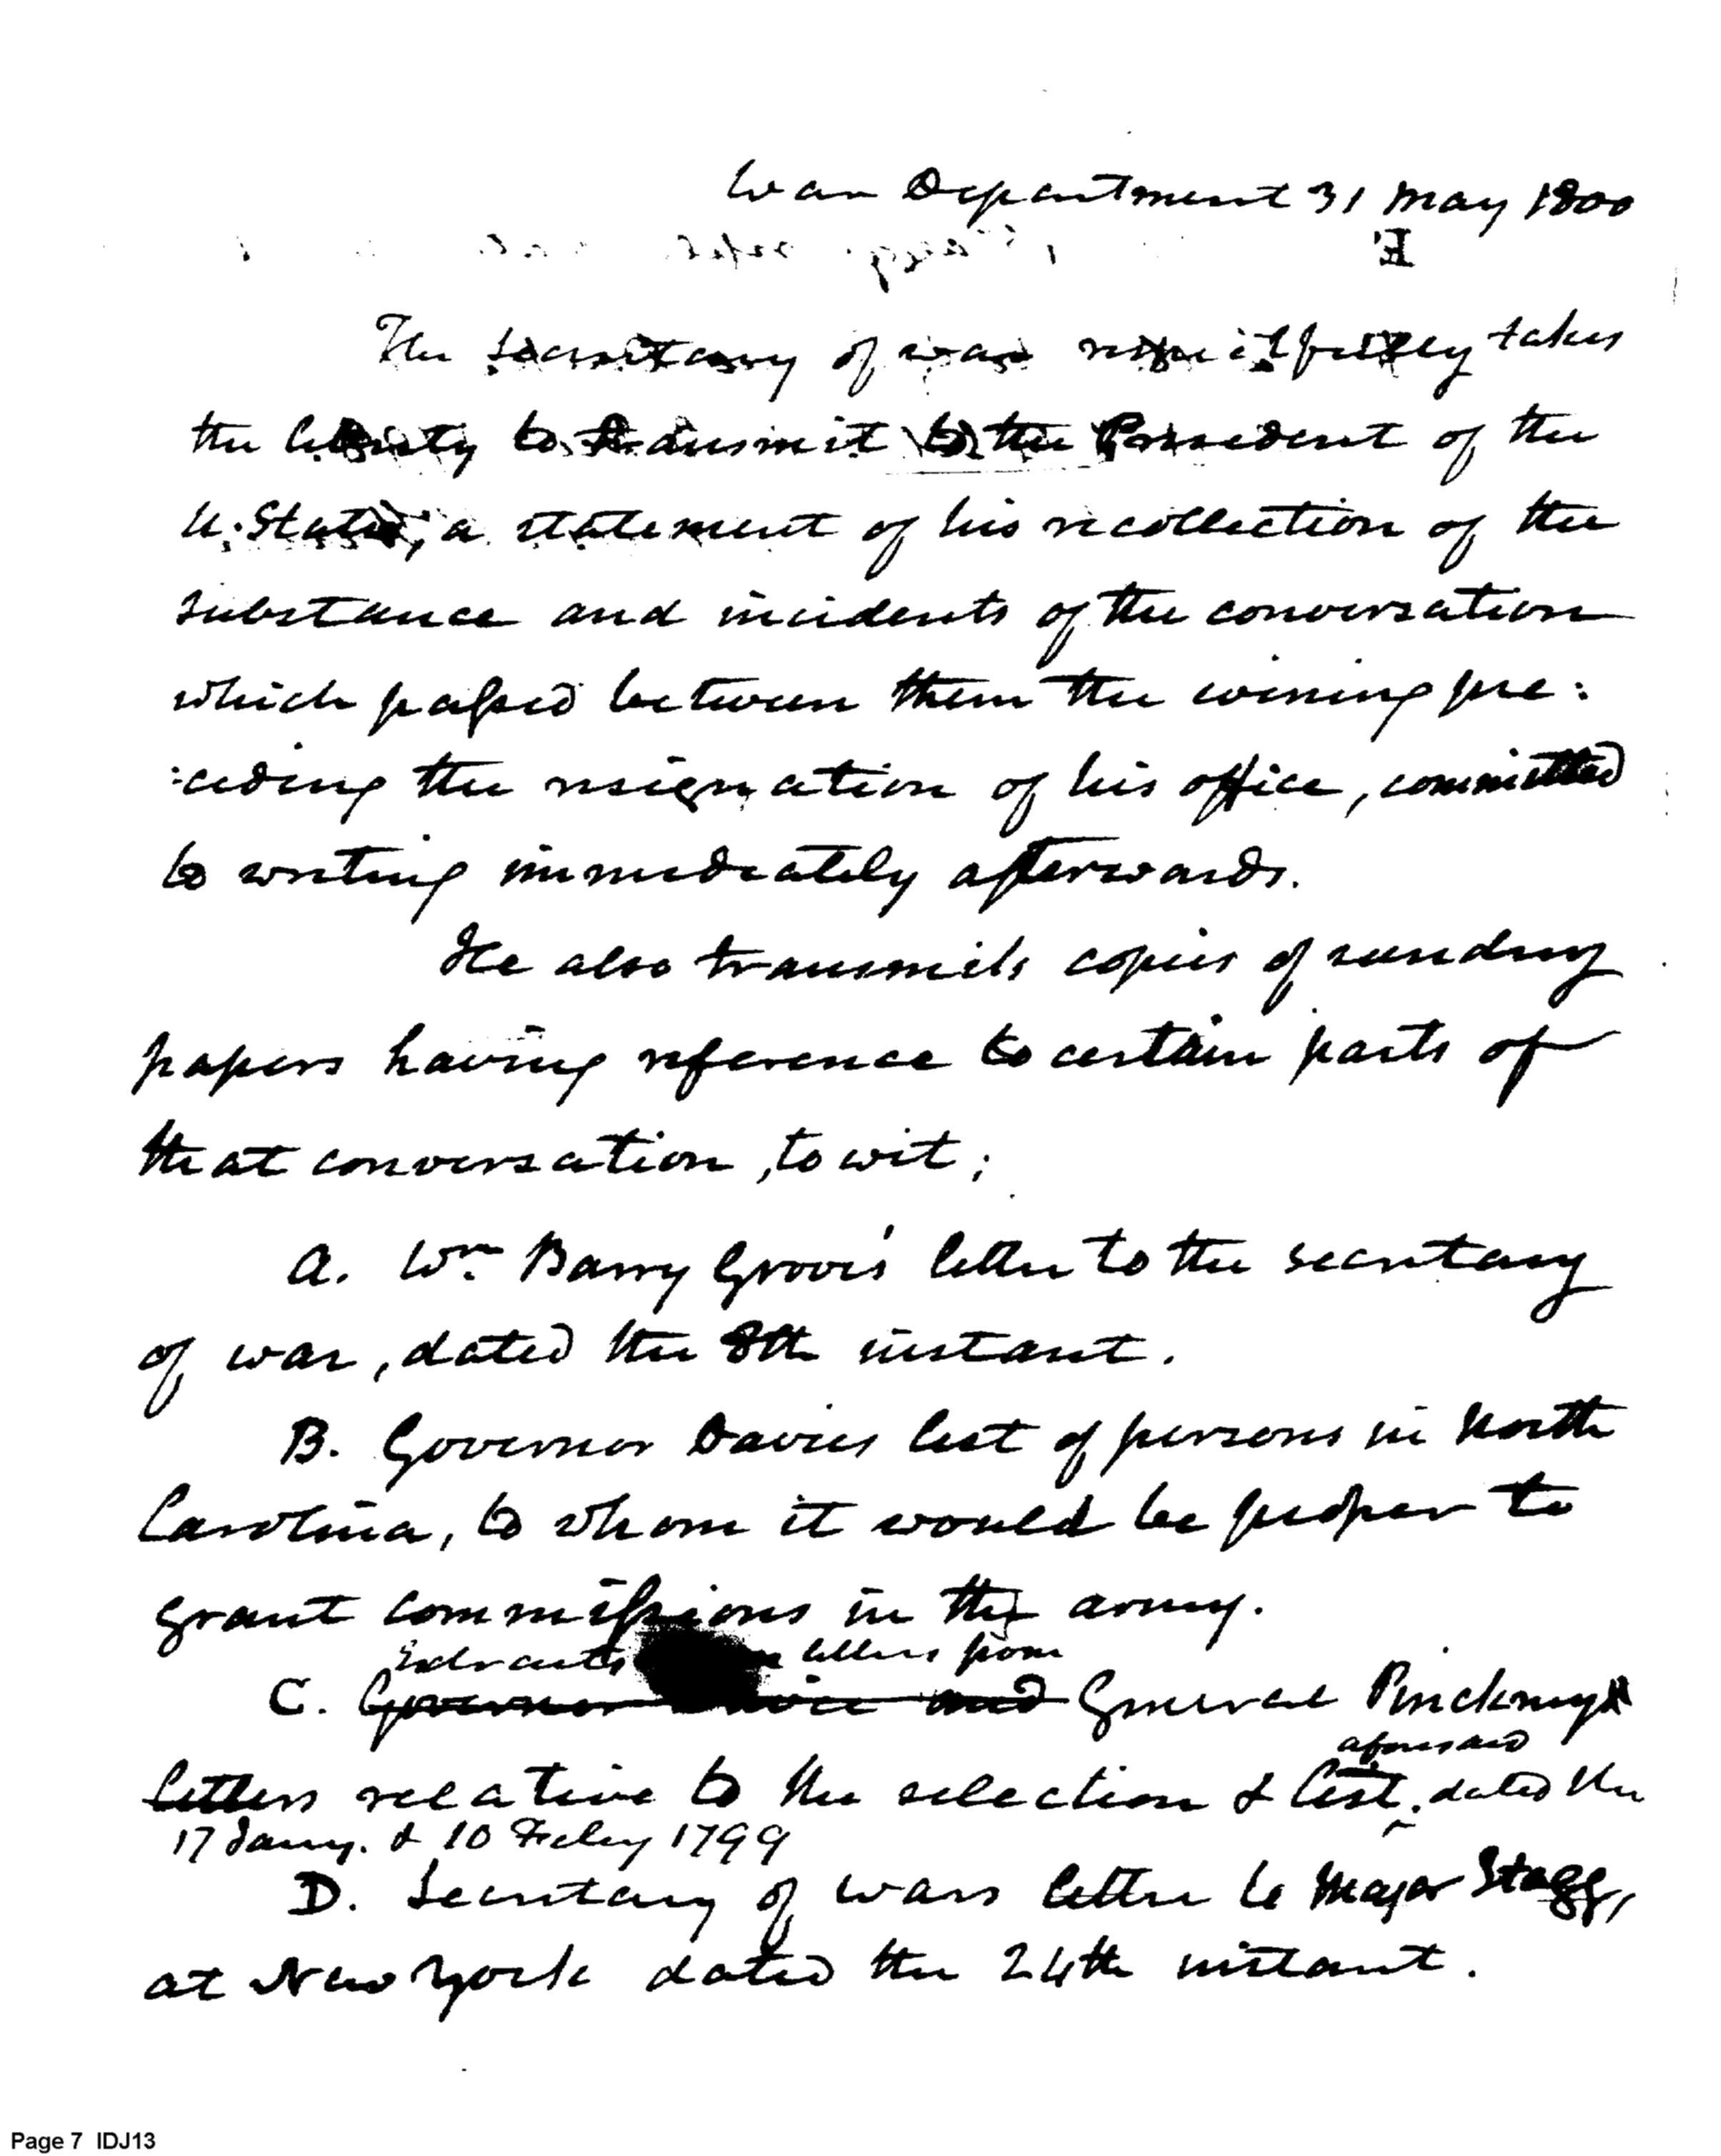 War Department 31 May 1800
The Secretary of war respectfully takes
the liberty to transmit to the President of the
U. States, a statement of his recollection of the
substance and incidents of the conversation
which passed between them the evening pre:
:ceding the resignation of his office, committed
to writing immediately afterwards.
He also transmits copies of sundry
papers having reference to certain parts of
that conversation, to wit;
A. Wm Barry Grove's letter to the secretary
of war, dated the 8th instant.
B. Governor Davies list of persons in North
Carolina, to whom it would be proper to
grant commissions in the army.
Extracts letters from
C. Governor and General Pinckney
aforesaid
letters relative to the selection & list, dated the
17 Jany. & 10 Feby 1799
D. Secretary of wars letter to Major Stagg,
at New York dated the 24th instant.
Page 7 IDJ13